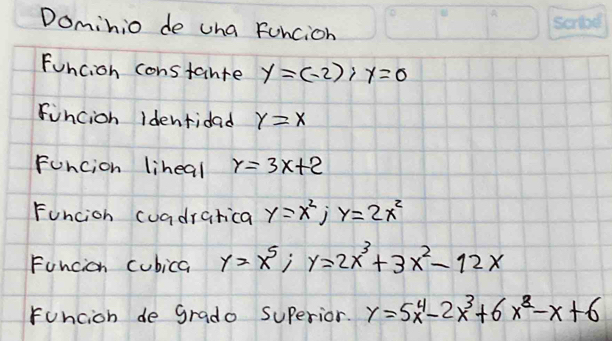 Dominio de una Función
Scribe
Funcion constante y=(-2); y=0
Funcion identidad y=x
Funcion lineal y=3x+2
Funcion cuadratica y=x²; y=2x²
Funcion cubica y=x⁵; y=2x³+3x²-12x
Funcion de grado superior. y=5x⁴-2x³+6x²-x+6